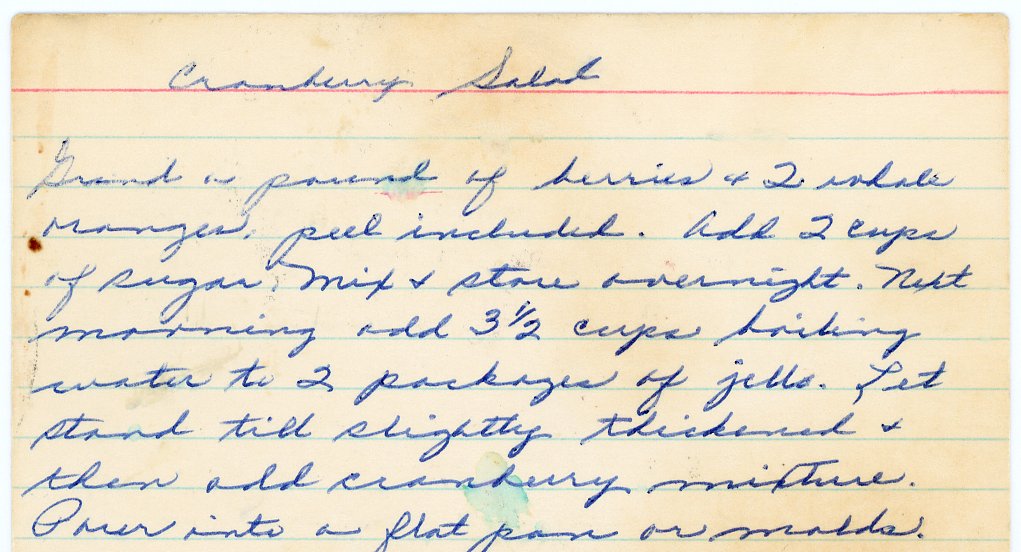 Cranberry Salad
Grand a pound of berries & 2 whole
oranges, peel included. Add 2 cups
of sugar, Mix & store overnight. Next
morning add 3 1/2 cups boiling
water to 2 packages of jello. Let
stand till slightly thickened &
then add cranberry mixture.
Pour into a flat pan or molds.